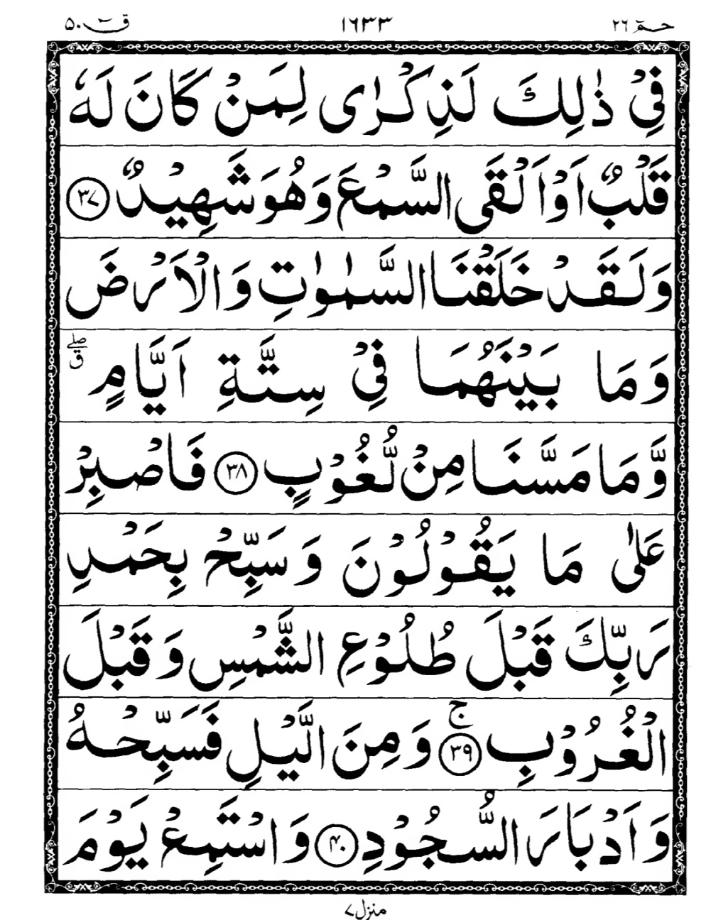 حٰمٓ ٢٦ ١٦٣٣ قٓ ٥٠
فِیْ ذٰلِكَ لَذِكْرٰی لِمَنْ كَانَ لَهٗ
قَلْبٌ اَوْ اَلْقَی السَّمْعَ وَهُوَ شَهِیْدٌ ﴿٣٧﴾
وَلَقَدْ خَلَقْنَا السَّمٰوٰتِ وَالْاَرْضَ
وَمَا بَیْنَهُمَا فِیْ سِتَّةِ اَیَّامٍ ۖق
وَّمَا مَسَّنَا مِنْ لُّغُوْبٍ ﴿٣٨﴾ فَاصْبِرْ
عَلٰی مَا یَقُوْلُوْنَ وَسَبِّحْ بِحَمْدِ
رَبِّكَ قَبْلَ طُلُوْعِ الشَّمْسِ وَقَبْلَ
الْغُرُوْبِ ۚ﴿٣٩﴾ وَمِنَ الَّیْلِ فَسَبِّحْهُ
وَاَدْبَارَ السُّجُوْدِ ﴿٤٠﴾ وَاسْتَمِعْ یَوْمَ
منزل ٧